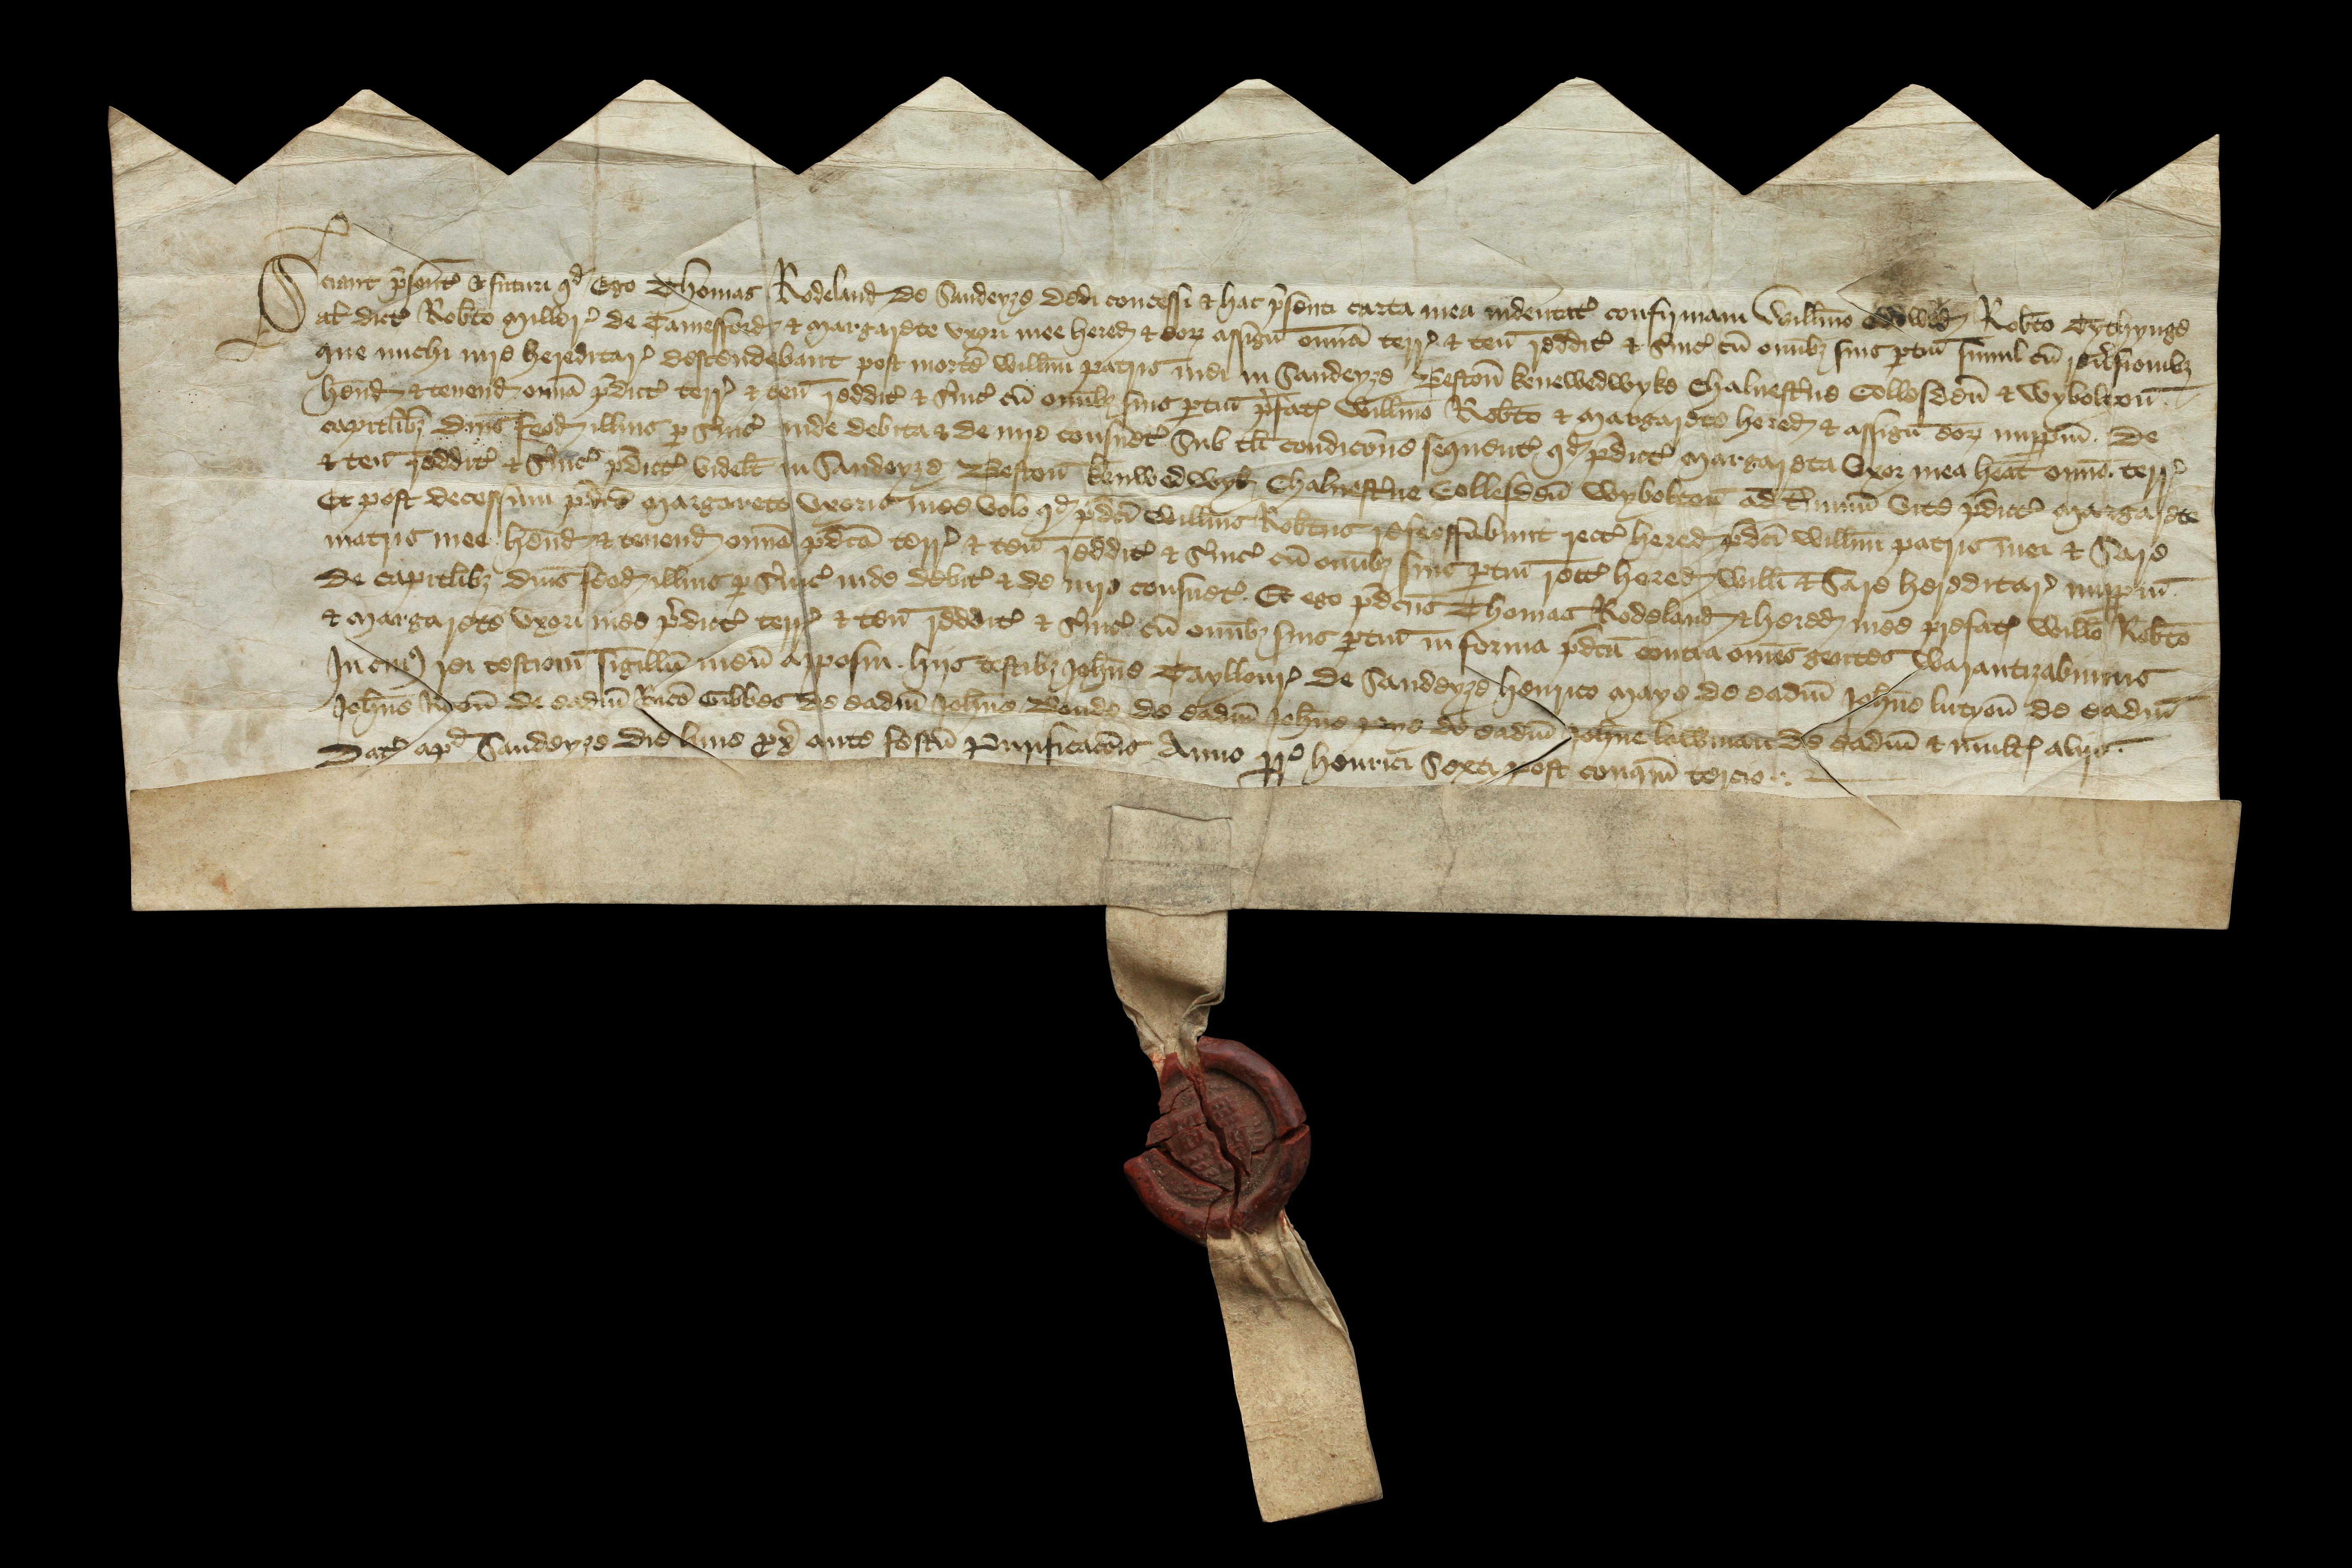 Sciant p̄sent̄ & futuri qd̄ Ego Thomas Rodeland de Sandeyze dedi concessi & hac p̄senti carta mea indentat̄ confirmaui Willm̄o Rob̄to Tythynge
al̄ dict̄ Rob̄to Miller̄ de Tamesford & Margarete vxori mee hered & eor̄ assign̄ om̄ia terr̄ & ten̄ reddit̄ & s̄uic̄ cū om̄ibȝ suis ptin̄ simul cū reūsionibȝ
que michi iure hereditar̄ descendebant post mortē Willm̄i patris mei in Sandeyze Beston̄ kenewedwyke Chalnest̄ne Collesden̄ & Wybolton̄
hend̄ & tenend om̄ia p̄dict̄ terr̄ & ten̄ reddit̄ & s̄uic̄ cū om̄ibȝ suis ptin̄ p̄fat̄ Willm̄o Rob̄to & Margarete hered & assign̄ eor̄ imppm̄. De
capitlibȝ dn̄is feod illius p s̄uic̄ inde debita & de iure consuet̄ Sub tl̄i condicōne sequent̄ qd̄ p̄dict̄ Margareta Vxor mea heat om̄ē terr̄
& ten̄ reddit̄ & s̄uic̄ p̄dict̄ videlt̄ in Sandeyze Beston̄ kenwedwyk Chalnest̄ne Collesden̄ Wybolton̄ ad t̄minū vite p̄dict̄ Margarete
Et post decessum p̄dc̄e Margarete vxoris mee volo qd̄ p̄dc̄i Willm̄s Rob̄tus refeoffabunt rect̄ hered p̄dc̄i Willm̄i patris mei & Sare
matris mee hend̄ & tenend om̄ia p̄dc̄a terr̄ & ten̄ reddit̄ & s̄uic̄ cū om̄ibȝ suis ptin̄ rect̄ hered Willi & Sare hereditar̄ imppm̄.
De capitlibȝ dn̄is feod illius p s̄uic̄ inde debit̄ & de iure consuet̄. Et ego p̄dcūs Thomas Rodeland & hered mee prefat̄ Willo Rob̄to
& Margarete vxori mee p̄dict̄ terr̄ & ten̄ reddit̄ & s̄uic̄ cū om̄ibȝ suis ptin̄ in forma p̄dc̄a contra om̄es gentes Warantizabimus
In cui9 rei testiom̄ sigillū meū apposui. hijs testibȝ Joh̄ne Tayllour̄ de Sandeyze henrico Maye de eadm̄ Joh̄ne lutyon̄ de eadm̄
Joh̄ne de eadm̄ Ric̄o Gibbes de eadm̄ Joh̄ne Bende de eadm̄ Joh̄ne de eadm̄ Joh̄ne lawman de eadm̄ & mult̄ alijs.
Dat̄ apd̄ Sandeyze die lune px̄ ante festū Purificacōis Anno rr̄ henrici Sexti post conqm̄ tercio.